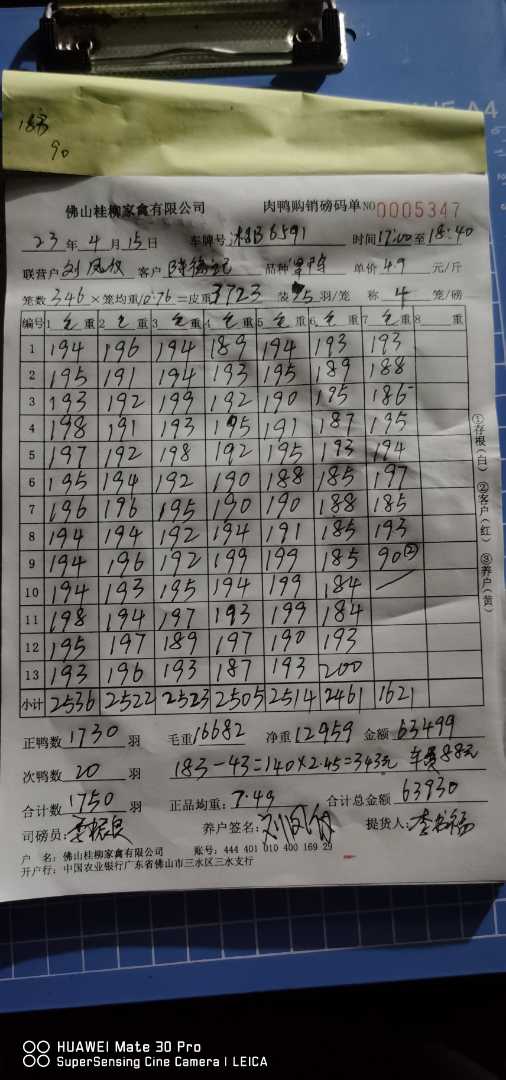 183
90
佛山桂柳家禽有限公司 肉鸭购销磅码单 NO 0005347
23年 4月 15日 车牌号 B6591 时间 17:00至18:40
联营户 刘凤 客户 品种 单价 4.9 元/斤
笼数 346 ×笼均重 10.76 =皮重 3723 装 5 羽/笼 称 4 笼/磅
编号 1 毛 重 2 毛 重 3 毛 重 4 毛 重 5 毛 重 6 毛 重 7 毛 重 8 重
1 194 196 194 189 194 193 193
2 195 191 194 193 195 189 188
3 193 192 199 192 190 195 186
4 198 191 193 195 191 187 195
5 197 192 198 192 195 193 194
6 195 194 192 190 188 185 197
7 196 196 195 190 190 188 185
8 194 194 192 194 191 185 193
9 194 196 192 199 199 185 90②
10 194 193 195 194 199 184
11 198 194 197 193 199 184
12 195 197 189 197 190 193
13 193 196 193 187 193 200
小计 2536 2522 2523 2505 2514 2461 1621
①存根(白) ②客户(红) ③养户(黄)
正鸭数 1730 羽 毛重 16682 净重 12959 金额 63499
次鸭数 20 羽 183-43=140×2.45=343元 车费88元
合计数 1750 羽 正品均重: 7.49 合计总金额 63930
司磅员: 养户签名: 刘凤 提货人: 李
户 名: 佛山桂柳家禽有限公司 账号: 444 401 010 400 169 29
开户行: 中国农业银行广东省佛山市三水区三水支行
A4
HUAWEI Mate 30 Pro
SuperSensing Cine Camera | LEICA